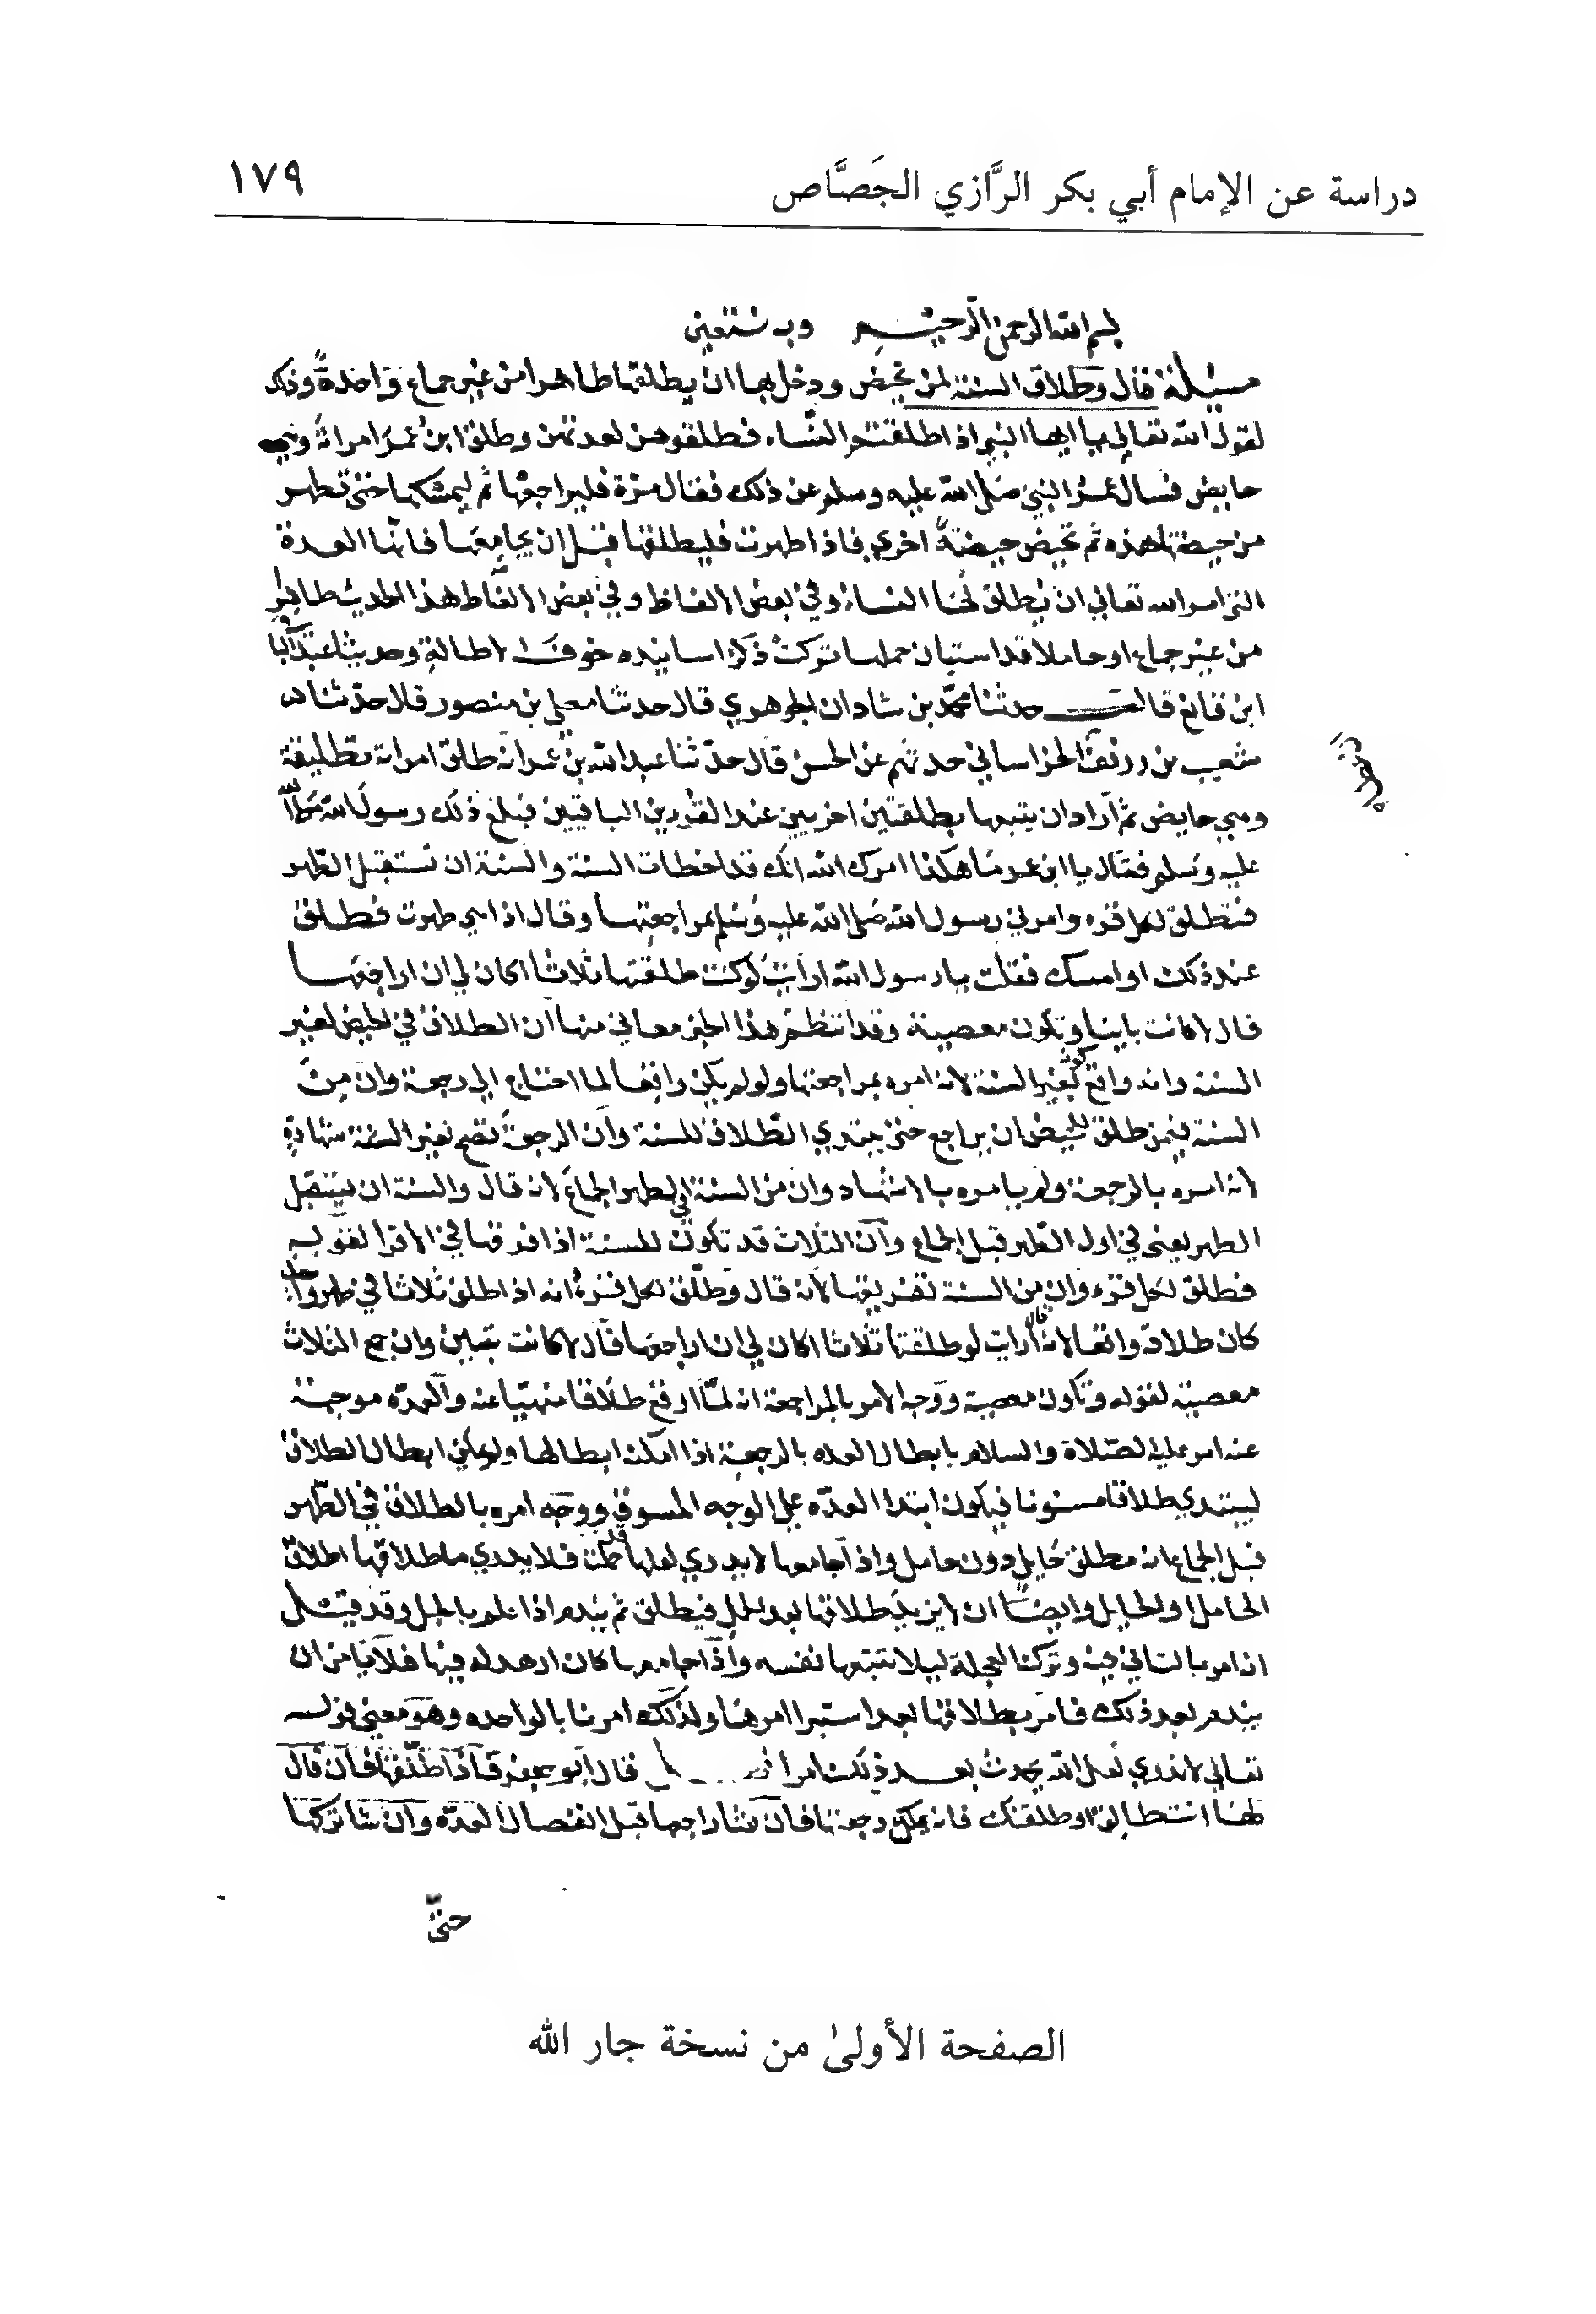 دراسة عن الإمام أبي بكر الرَّازي الجَصَّاص ١٧٩
بسم الله الرحمن الرحيم وبه نستعين
مسئلة قال وطلاق السنة لمن تحيض ودخل بها ان يطلقها طاهرا من غير جماع واحدة وذلك
لقول الله تعالى يا ايها النبي اذا طلقتم النساء فطلقوهن لعدتهن وطلق ابن عمر امراة وهي
حايض فسال عمر النبي صلى الله عليه وسلم عن ذلك فقال مره فليراجعها ثم ليمسكها حتى تطهر
من حيضتها هذه ثم تحيض حيضة اخرى فاذا طهرت فليطلقها قبل ان يجامعها فانها العدة
التي امر الله تعالى ان يطلق لها النساء وفي بعض الالفاظ وفي بعض الالفاظ هذا الحديث طاهرا
من غير جماع او حاملا قد استبان حملها تركت ذكر اسانيده خوف الاطالة وحدثنا عبد الباقي
ابن قانع قال حدثنا محمد بن شاذان الجوهري قال حدثنا معلى بن منصور قال حدثنا
شعيب بن رزيق الخراساني حدثهم عن الحسن قال حدثنا عبد الله بن عمر انه طلق امراته تطليقة
وهي حايض ثم اراد ان يتبعها بطلقتين اخريين عند القرءين الباقيين فبلغ ذلك رسول الله صلى الله
عليه وسلم فقال يا ابن عمر ما هكذا امرك الله انك قد اخطات السنة والسنة ان تستقبل الطهر
فتطلق لكل قرء وامرني رسول الله صلى الله عليه وسلم بمراجعتها وقال اذا هي طهرت فطلق
عند ذلك او امسك فقلت يا رسول الله ارايت لو كنت طلقتها ثلاثا اكان لي ان اراجعها
قال لا كانت باينا وتكون معصية وقد انتظم هذا الخبر معاني منها ان الطلاق في الحيض لغير
السنة وانه واقع كونه لغير السنة لانه امره بمراجعتها ولو لم يكن واقعا لما احتاج الى رجعة وان من
السنة فيمن طلق للحيض ان يراجع حتى يبتدي الطلاق للسنة وان الرجعة تصح بغير شهادة
لانه امره بالرجعة ولم يامره بالاشهاد وان من السنة الطهر الجماع لانه قال والسنة ان يستقبل
الطهر يعني في اول الطهر قبل الجماع وان الثلاث قد تكون للسنة اذا فرقها في الاقرا لقوله
فطلق لكل قرء وان من السنة تفريقها لانه قال وطلق لكل قرء وانه اذا طلق ثلاثا في طهر واحد
كان طلاقه واقعا لانه قال ارايت لو طلقتها ثلاثا اكان لي ان اراجعها قال لا كانت تبين وان جمع الثلاث
معصية لقوله وتكون معصية ووجه الامر بالمراجعة انه لما اوقع طلاقا منهيا عنه والعدة موجبة
عنه امر عليه الصلاة والسلام بابطال العده بالرجعة اذا امكن ابطالها ولم يمكن ابطال الطلاق
ليبتدي طلاقا مسنونا فيكون ابتدا العدة على الوجه المسنون ووجه امره بالطلاق في الطهر
قبل الجماع انه مطلق حايل دون حامل واذا جامعها لا يدري لعلها حملت فلا يدري ما طلاقها اطلاق
الحامل او الحايل وايضا ان لا يريد طلاقها بعد الحمل فيطلق ثم يندم اذا علم بالحبل وقد قيل
انه امر بالتاني فيه وترك العجلة ليلا تتبعها نفسه واذا جامعها كان ازهد له فيها فلا يامن ان
يندم بعد ذلك فامر بطلاقها بعد استبرا امرها ولذلك امرنا بالواحده وهو معنى قوله
تعالى لا تدري لعل الله يحدث بعد ذلك امرا قال ابو جعفر فاذا طلقها فان قال
لها انت طالق او طلقتك فانه يملك رجعتها فان شا راجعها قبل انفصال العدة وان شا تركها
حتى
الصفحة الأولىٰ من نسخة جار الله